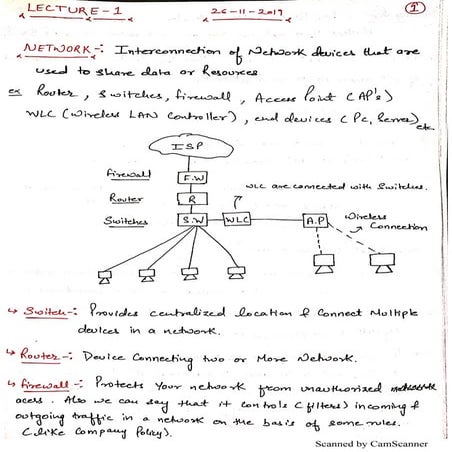 LECTURE-1
26-11-2019
1
NETWORK-: Interconnection of Network devices that are
used to share data or Resources
ex Router, Switches, firewall, Access Point (AP's)
WLC (Wireless LAN Controller), end devices (Pc, Server) etc.
ISP
firewall
F.W
Router
R
WLC are connected with Switches.
Switches
S.W
WLC
A.P
Wireless
Connection
↳ Switch-: Provides centralized location & Connect Multiple
devices in a network.
↳ Router-: Device Connecting two or More Network.
↳ firewall-: Protects Your network from unauthorized
acess. Also we can say that it controls (filters) incoming &
outgoing traffic in a network on the basis of some rules.
(like Company Policy).
Scanned by CamScanner